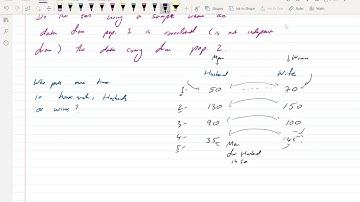 Do the same using a sample where the
data from pop. 1 is correlated (is not independent
from) the data coming from pop. 2.
Men Women
Husband Wife
Who puts more time
in housework, Husbands
or wives?
1- 50 70
2- 130 150
3- 90 100
4- 35 45
5-
Men
Husband